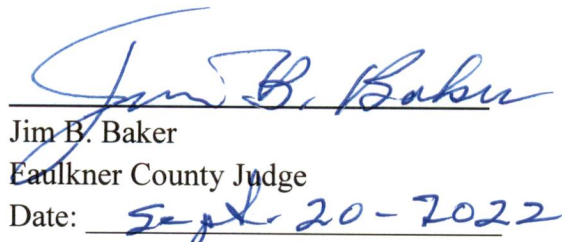 Jim B. Baker
Jim B. Baker
Faulkner County Judge
Date: Sept. 20-2022